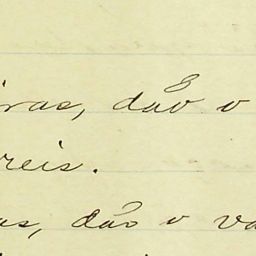 iras, dão o
reis.
as, dão o va